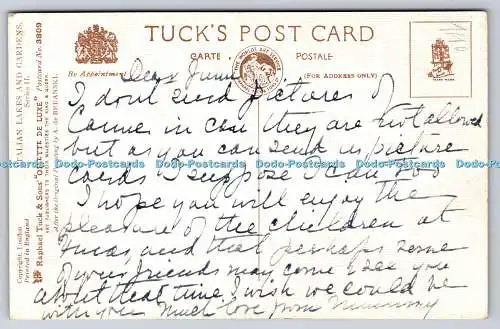 TUCK'S POST CARD
CARTE POSTALE
By Appointment
(FOR ADDRESS ONLY)
I dont send pictures of
in case they are not allowed
but as you can send us picture
cards I suppose I can too
I hope you will enjoy the
pleasure of the children at
Xmas, and that perhaps some
of your friends may come & see you
about that time, I wish we could be
with you Much love from Mummy
ITALIAN LAKES AND GARDENS.
SERIES II. Postcard No. 3809
Raphael Tuck & Sons' "OILETTE DE LUXE"
ART PUBLISHERS TO THEIR MAJESTIES THE KING & QUEEN.
After the Original Painting by
Copyright, London.
Printed in England
Dodo-Postcards Dodo-Postcards Dodo-Postcards Dodo-Postcards